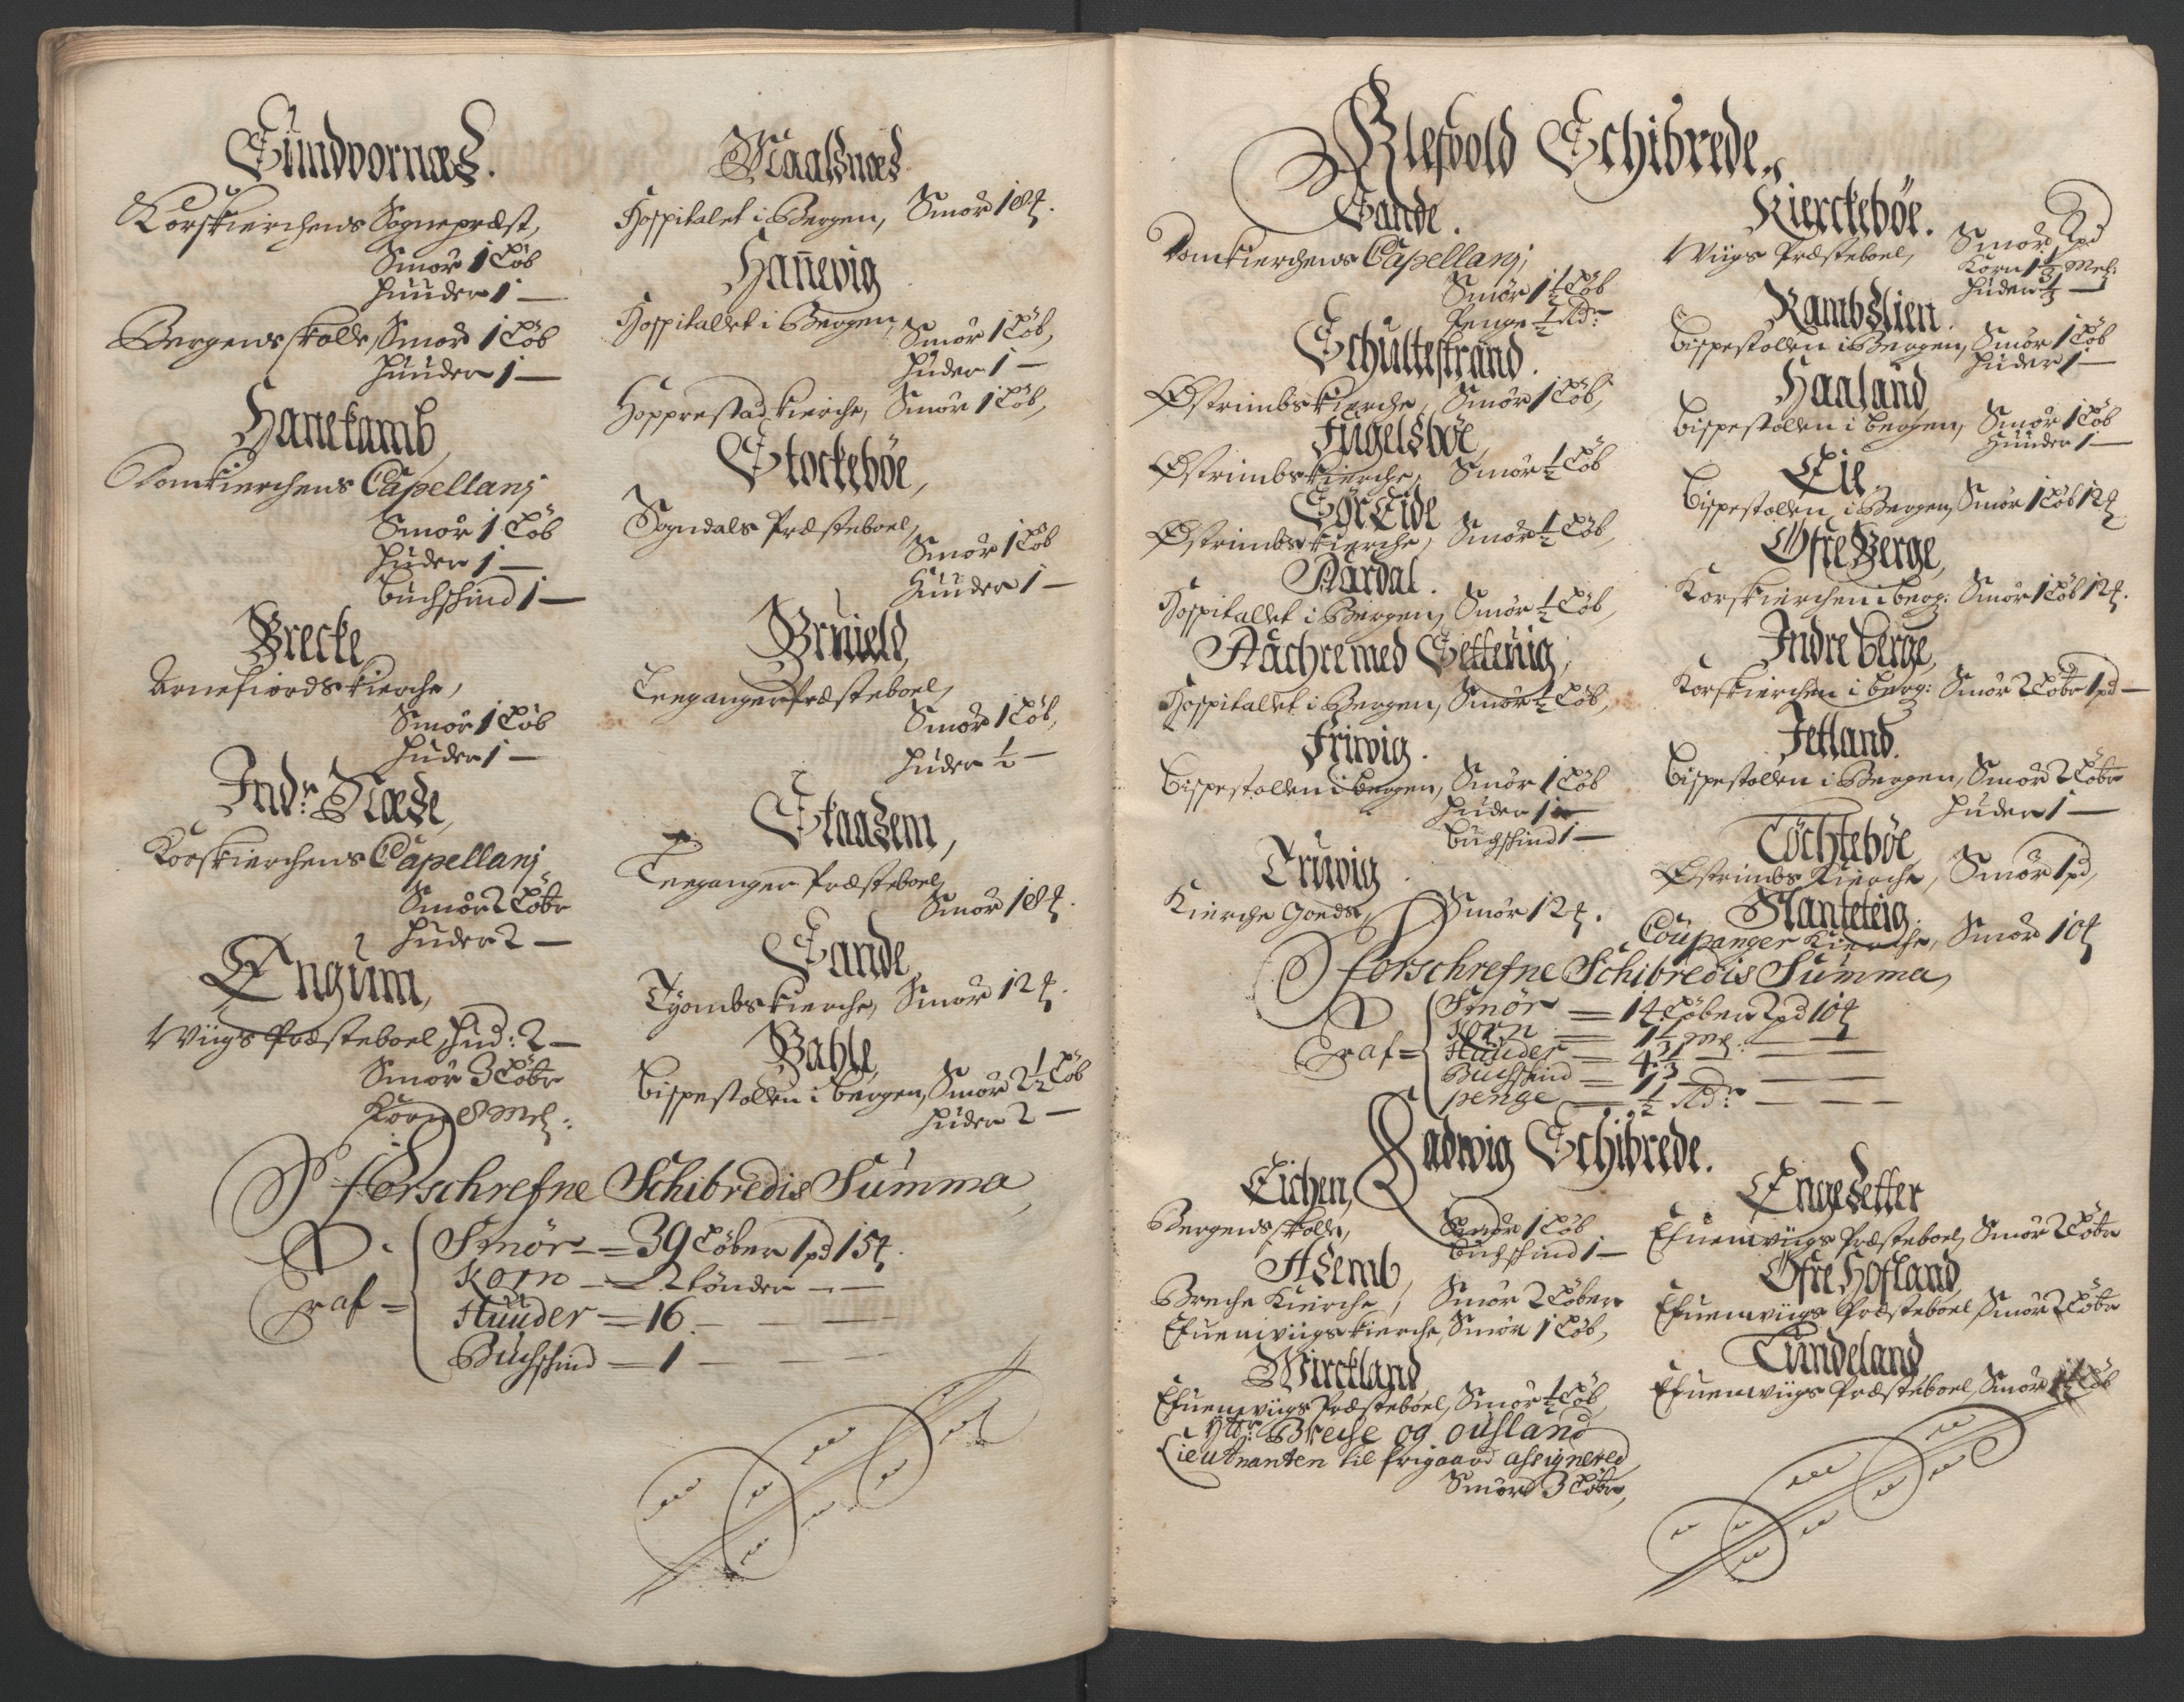 Sundvornæs.
Korskierchens Sognepræst,
Smør 1 Løb
Huuder 1 —
Bergens skolle, Smør 1 Løb
Huuder 1 —
Hanekamb,
Domkierchens Capellanj
Smør 1 Løb
Huder 1 —
Buchschind 1 —
Brecke,
Arnefiords kierche,
Smør 1 Løb
Huder 1 —
Indr Næse,
Korskierchens Capellanj
Smør 2 Løbr
Huder 2 —
Engum,
Wiigs Præsteboel, Hud: 2 —
Smør 3 Løbr
Korn 8 Mel:
Maalsnæs
Hospitalet i Bergen, Smør 18 ꝉ.
Hanevig
Hospitallet i Bergen, Smør 1 Løb,
Huder 1 —
Hopprestad kierche, Smør 1 Løb,
Stockebøe,
Sogndals Præsteboel,
Smør 1 Løb
Huuder 1 —
Gruield,
Leeganger Præsteboel,
Smør 1 Løb,
Huder ½ —
Skaasem,
Leeganger Præsteboel,
Smør 18 ꝉ.
Sande,
Tyombs kierche, Smør 12 ꝉ.
Bahle,
Bispestollen i Bergen, Smør 2½ Løb
Huder 2 —
Forschrefne Schibredis Summa,
Er af =
Smør — = 39 Løber 1 pd 15 ꝉ.
Korn — = 2 tønder — —
Huuder — = 16. — — —
Buchschind — = 1 — — —
Klefvold Schibrede.
Sande.
Domkierchens Capellanj,
Smør 1½ Løb
Penge ½ Rdr
Schultestrand.
Østrimbs kierche, Smør 1 Løb,
Fugelsbøe,
Østrimbs kierche, Smør ½ Løb
Sør Eide
Østrimbs kierche, Smør ½ Løb,
Aardal.
Hospitallet i Bergen, Smør ½ Løb,
Aachre med Settevig,
Hospitallet i Bergen, Smør ½ Løb,
Friwig.
Bispestollen i Bergen, Smør 1 Løb
Huder 1 —
Buchschind 1 —
Truwig.
Kierche Goeds, Smør 12 ꝉ.
Kierckebøe.
Wiigs Præsteboel, Smør 2 pd
Korn 1⅓ Mel:
Huder ⅓ —
Rambslien.
Bispestollen i Bergen, Smør 1 Løb
Huder 1 —
Haaland,
Bispestollen i bergen, Smør 1 Løb
Huuder 1 —
Eie,
Bispestollen i Bergen, Smør 1 Løb 12 ꝉ
Øfre Berge,
Korskierchen i berg: Smør 1 Løb 12 ꝉ.
Indre berge,
Korskierchen i berg: Smør 2 Løbr 1 pd —
Jetland.
Bispestollen i Bergen, Smør 2 Løbr
Huder 1 —
Tøchtebøe,
Østrimbs Kierche, Smør 1 pd,
Slanteteig.
Coupanger Kierche, Smør 10 ꝉ
Forschrefne Schibredis Summa,
Er af =
Smør — = 14 Løber 2 pd 10 ꝉ
Korn — = 1⅓ Mel: — —
Huuder — = 4⅓ — —
Buchschind — = 1 — — —
penge — ½ Rdr — — —
Ladwig Schibrede.
Eichen,
Bergens skolle, Smør 1 Løb
Buchschind 1 —
Asemb,
Breche Kierche, Smør 2 Løber
Efuenwiigs kierche, Smør 1 Løb,
Mirckland,
Efuenwiigs Præsteboel, Smør ½ Løb,
yttr Breche og ousland
Lieutnanten til frigaard assignered,
Smør 3 Løbr,
Engesetter
Efuenwiigs Præsteboel, Smør 2 Løbr
Øfre Hofland,
Efuenwiigs Præsteboel, Smør 2 Løbr
Tundeland
Efuenwiigs Præsteboel, Smør Løb